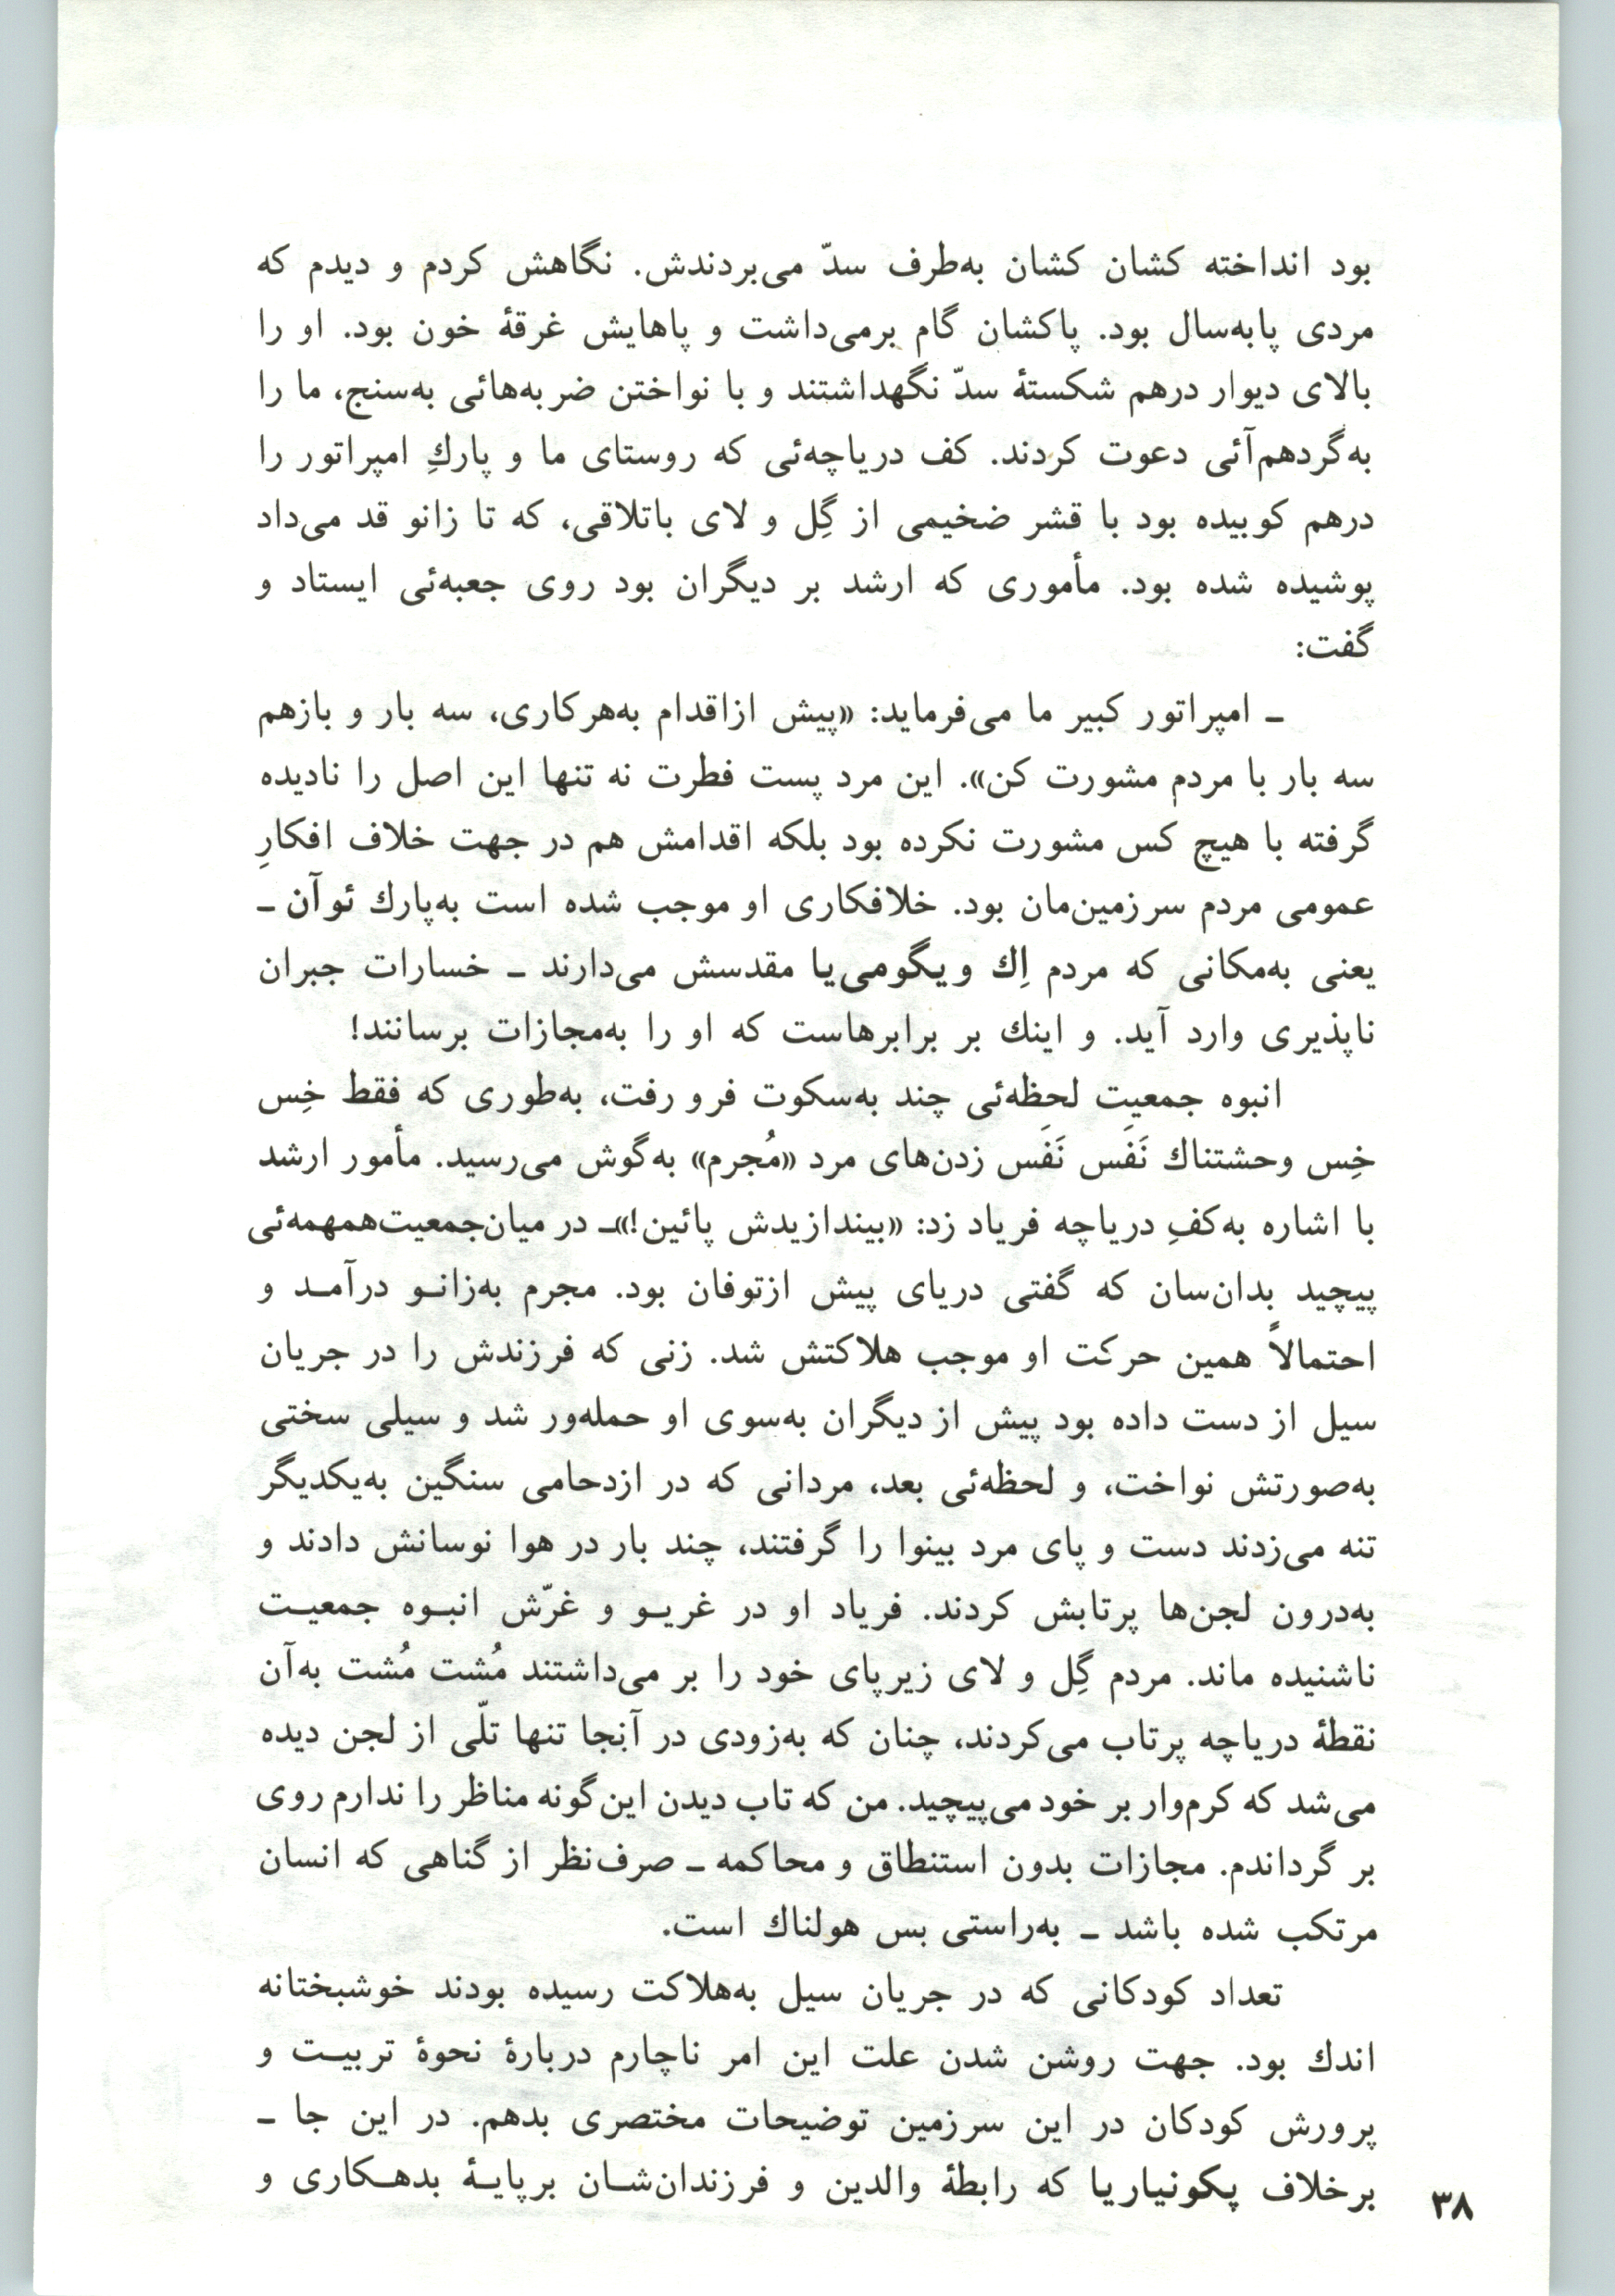 بود انداخته کشان کشان به‌طرف سدّ می‌بردندش. نگاهش کردم و دیدم که
مردی پابه‌سال بود. پاکشان گام برمی‌داشت و پاهایش غرقهٔ خون بود. او را
بالای دیوار درهم شکستهٔ سدّ نگهداشتند و با نواختن ضربه‌هائی به‌سنج، ما را
به‌گردهم‌آئی دعوت کردند. کف دریاچه‌ئی که روستای ما و پاركِ امپراتور را
درهم کوبیده بود با قشر ضخیمی از گِل و لای باتلاقی، که تا زانو قد می‌داد
پوشیده شده بود. مأموری که ارشد بر دیگران بود روی جعبه‌ئی ایستاد و
گفت:
ـ امپراتور کبیر ما می‌فرماید: «پیش ازاقدام به‌هرکاری، سه بار و بازهم
سه بار با مردم مشورت کن». این مرد پست فطرت نه تنها این اصل را نادیده
گرفته با هیچ کس مشورت نکرده بود بلکه اقدامش هم در جهت خلاف افکارِ
عمومی مردم سرزمین‌مان بود. خلافکاری او موجب شده است به‌پارك ئوآن ـ
یعنی به‌مکانی که مردم اِك ویگومی‌یا مقدسش می‌دارند ـ خسارات جبران
ناپذیری وارد آید. و اینك بر برابرهاست که او را به‌مجازات برسانند!
انبوه جمعیت لحظه‌ئی چند به‌سکوت فرو رفت، به‌طوری که فقط خِس
خِس وحشتناك نَفَس نَفَس زدن‌های مرد «مُجرم» به‌گوش می‌رسید. مأمور ارشد
با اشاره به‌کفِ دریاچه فریاد زد: «بیندازیدش پائین!»ـ در میان‌جمعیت‌همهمه‌ئی
پیچید بدان‌سان که گفتی دریای پیش ازتوفان بود. مجرم به‌زانـو درآمـد و
احتمالاً همین حرکت او موجب هلاکتش شد. زنی که فرزندش را در جریان
سیل از دست داده بود پیش از دیگران به‌سوی او حمله‌ور شد و سیلی سختی
به‌صورتش نواخت، و لحظه‌ئی بعد، مردانی که در ازدحامی سنگین به‌یکدیگر
تنه می‌زدند دست و پای مرد بینوا را گرفتند، چند بار در هوا نوسانش دادند و
به‌درون لجن‌ها پرتابش کردند. فریاد او در غریـو و غرّش انبـوه جمعیـت
ناشنیده ماند. مردم گِل و لای زیرپای خود را بر می‌داشتند مُشت مُشت به‌آن
نقطهٔ دریاچه پرتاب می‌کردند، چنان که به‌زودی در آنجا تنها تلّی از لجن دیده
می‌شد که کرم‌وار بر خود می‌پیچید. من که تاب دیدن این‌گونه مناظر را ندارم روی
بر گرداندم. مجازات بدون استنطاق و محاکمه ـ صرف‌نظر از گناهی که انسان
مرتکب شده باشد ـ به‌راستی بس هولناك است.
تعداد کودکانی که در جریان سیل به‌هلاکت رسیده بودند خوشبختانه
اندك بود. جهت روشن شدن علت این امر ناچارم دربارهٔ نحوهٔ تربیـت و
پرورش کودکان در این سرزمین توضیحات مختصری بدهم. در این جا ـ
برخلاف پکونیاریا که رابطهٔ والدین و فرزندان‌شـان برپایـهٔ بدهـکاری و
۳۸